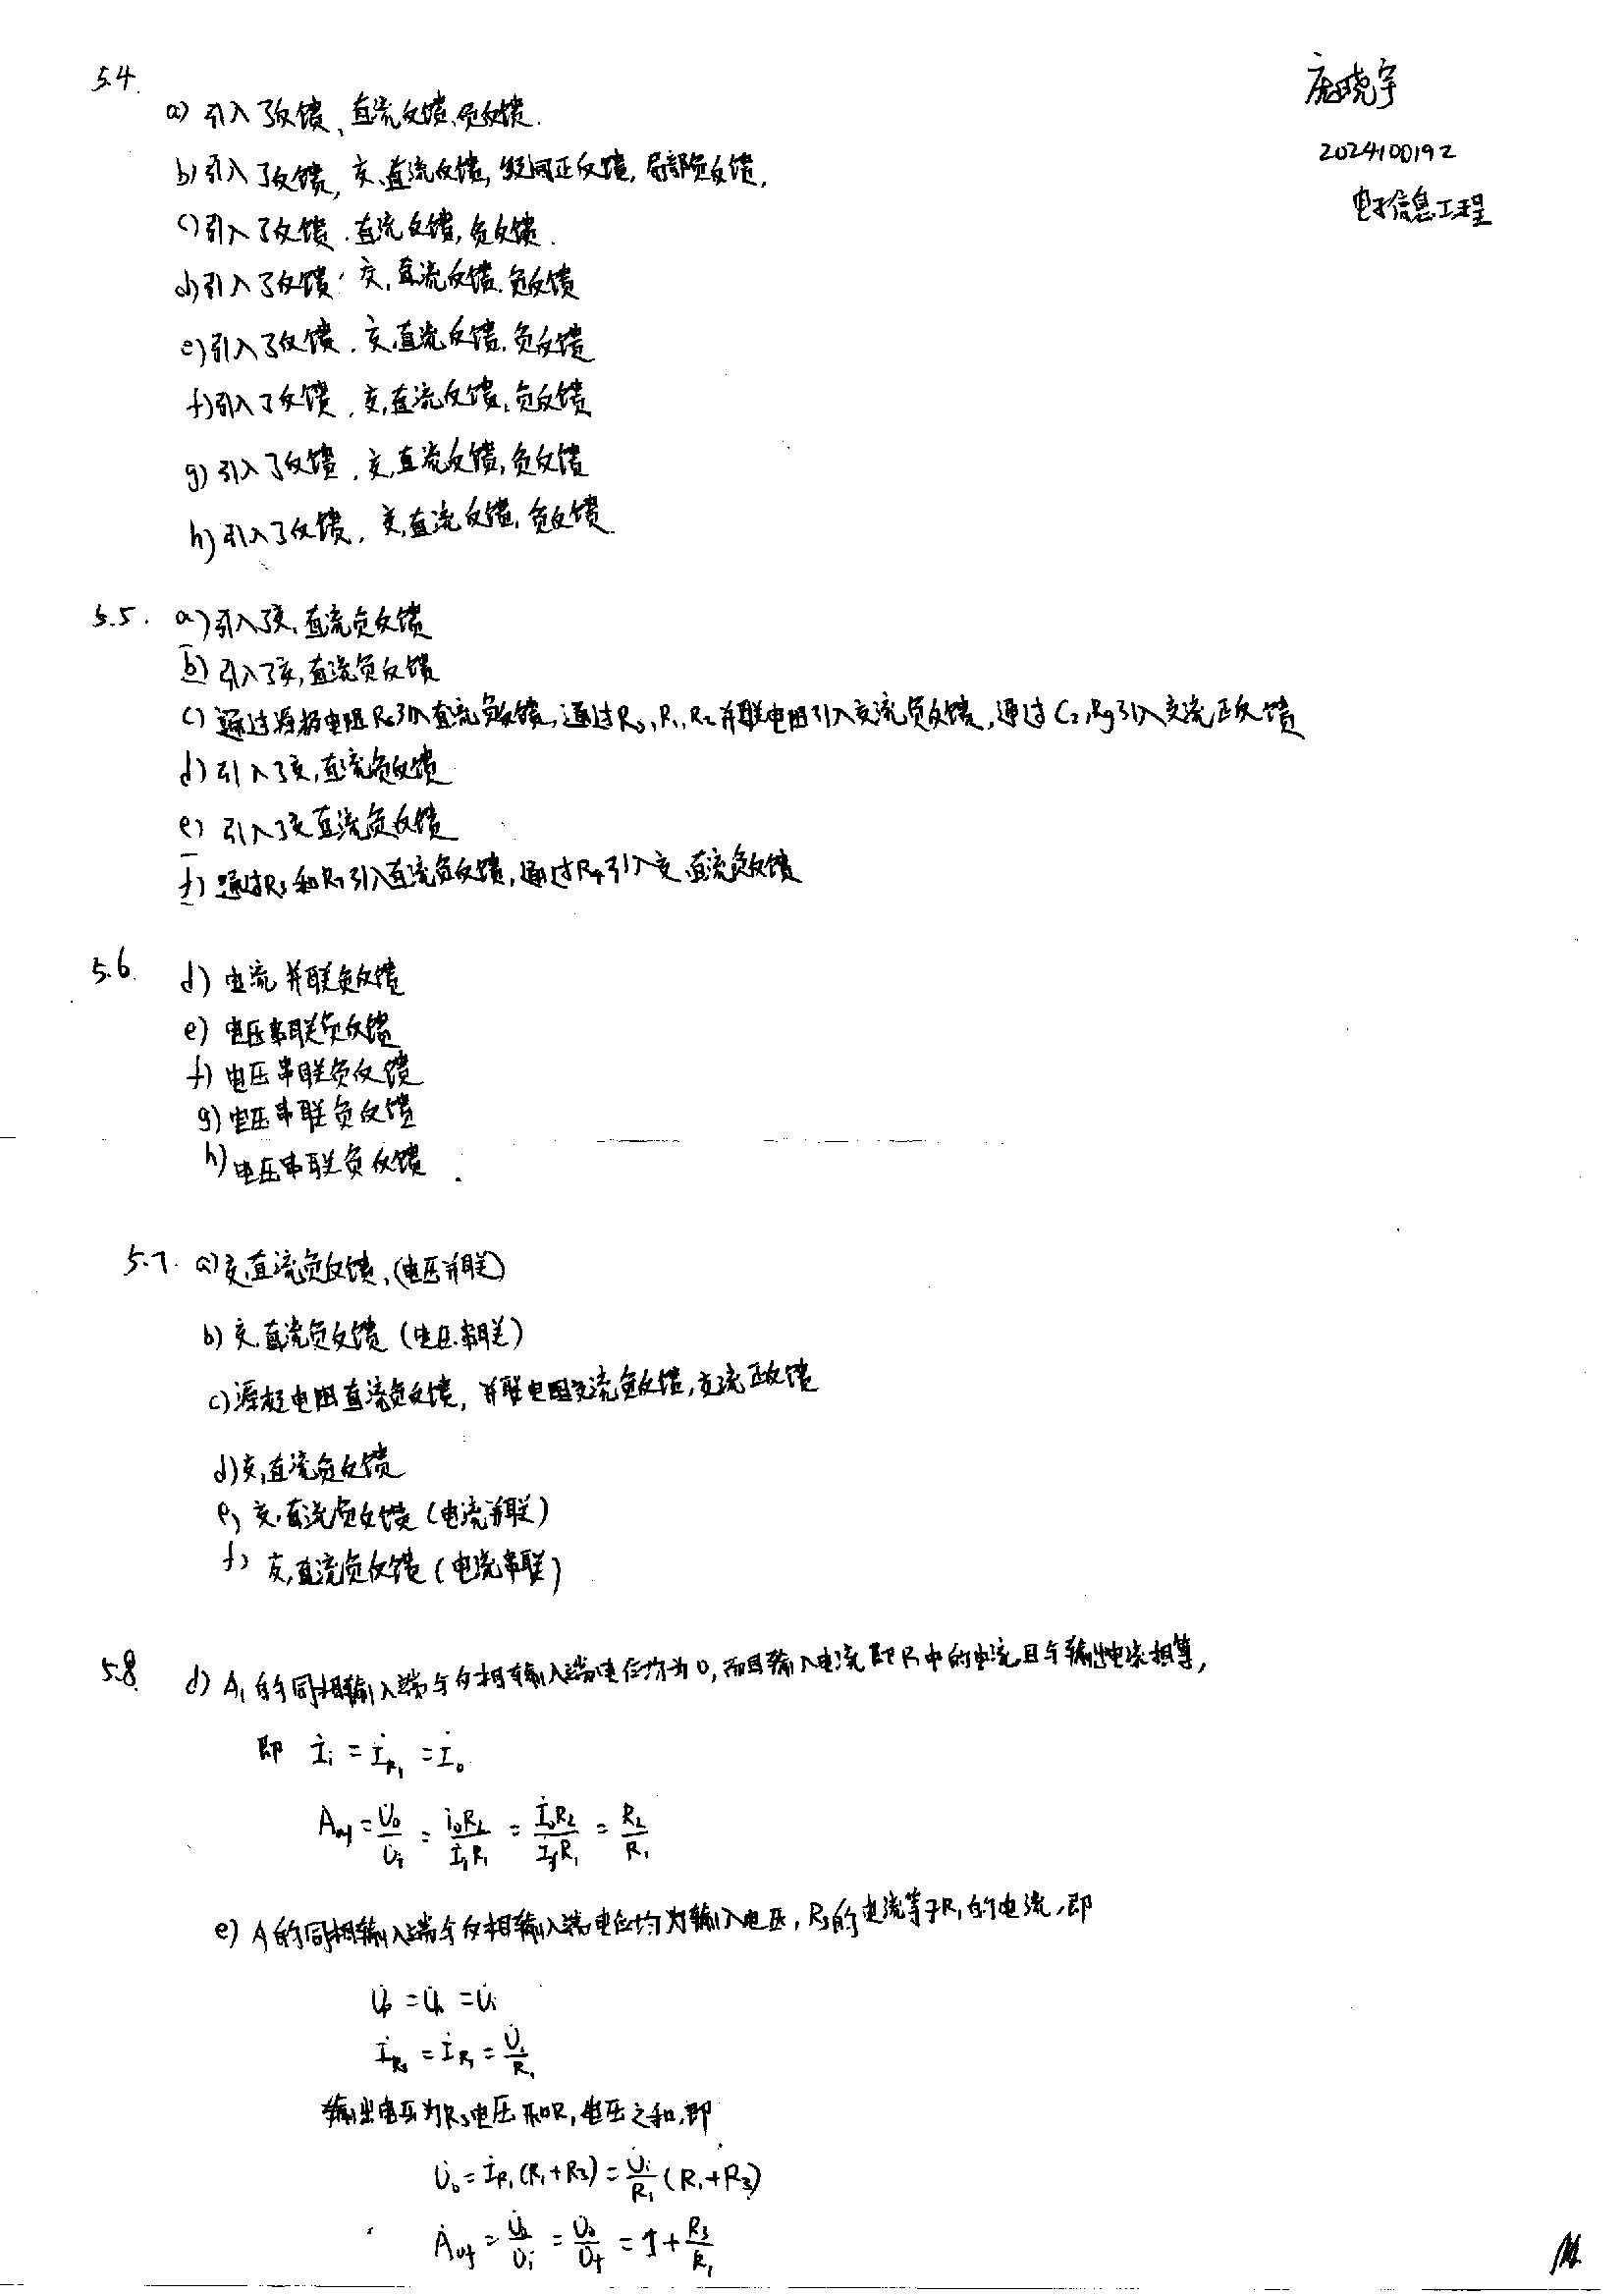 5.4.
庞晓宇
2024100192
电子信息工程
a) 引入了反馈、直流反馈、负反馈.
b) 引入了反馈, 交、直流反馈, 级间正反馈, 局部负反馈,
c) 引入了反馈. 直流反馈, 负反馈.
d) 引入了反馈. 交, 直流反馈. 负反馈
e) 引入了反馈. 交, 直流反馈. 负反馈
f) 引入了反馈. 交, 直流反馈, 负反馈
g) 引入了反馈. 交, 直流反馈, 负反馈
h) 引入了反馈. 交, 直流反馈, 负反馈
5.5. a) 引入了交, 直流负反馈
b) 引入了交, 直流负反馈
c) 通过源极电阻Rs引入直流负反馈, 通过Rs, R1, R2并联电阻引入交流负反馈, 通过C2, Rg引入交流正反馈
d) 引入了交, 直流负反馈
e) 引入了交直流负反馈
f) 通过R3和R7引入直流负反馈, 通过R4引入交、直流负反馈
5.6. d) 电流并联负反馈
e) 电压串联负反馈
f) 电压串联负反馈
g) 电压串联负反馈
h) 电压串联负反馈.
5.7. a) 交, 直流负反馈, (电压并联)
b) 交, 直流负反馈 (电压串联)
c) 源极电阻直流负反馈, 并联电阻交流负反馈, 交流正反馈
d) 交, 直流负反馈
e) 交, 直流负反馈 (电流并联)
f) 交, 直流负反馈 (电流串联)
5.8. d) A1的同相输入端与反相输入端电位均为0, 而且输入电流即R1中的电流且与输出电流相等,
即 İi = İR1 = İo
Ȧuf = U̇o/U̇i = İoR2/İiR1 = İoR2/İfR1 = R2/R1
e) A的同相输入端与反相输入端电位均为输入电压, R3的电流等于R1的电流, 即
U̇p = U̇n = U̇i
İR3 = İR1 = U̇i/R1
输出电压为R3电压和R1电压之和, 即
U̇o = İR1(R1+R3) = U̇i/R1 (R1+R3)
Ȧuf = U̇o/U̇i = U̇o/U̇f = 1 + R3/R1